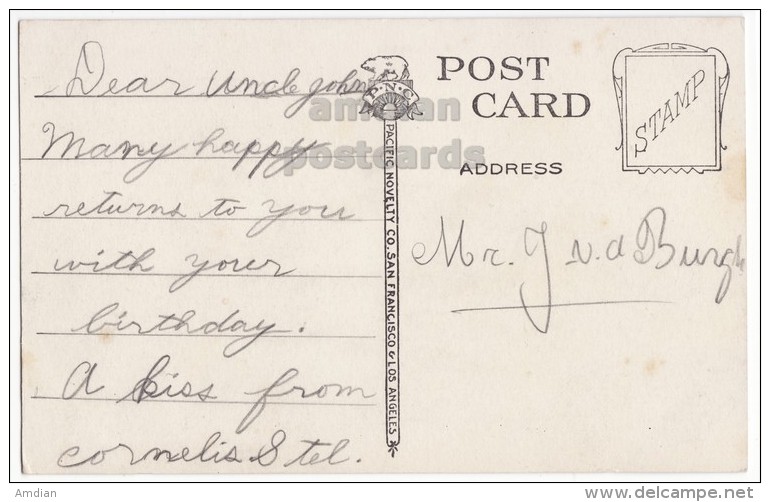 Dear Uncle John
Many happy
returns to you
with your
birthday.
A kiss from
cornelis Stel.
P.N.C.
PACIFIC NOVELTY CO. SAN FRANCISCO & LOS ANGELES.
POST
CARD
ADDRESS
STAMP
Mr. J v. d Burgh
amdian
postcards
Amdian
delcampe.net